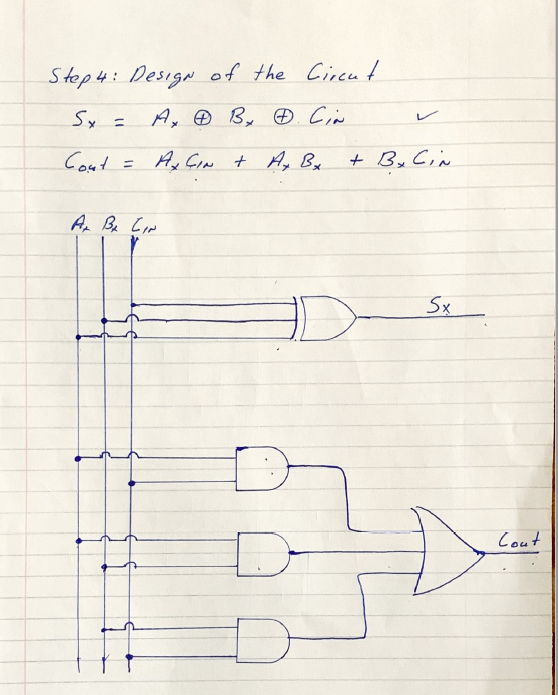 Step 4: Design of the Circut
Sx = Ax ⊕ Bx ⊕ Cin ✓
Cout = Ax Cin + Ax Bx + Bx Cin
Ax Bx Cin
Sx
Cout